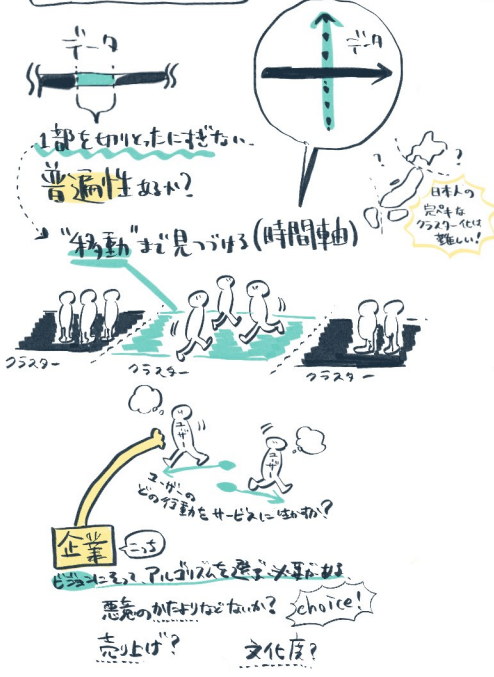 データ
データ
1部を切りとったにすぎない
普遍性あるか?
"移動"まで見つづける(時間軸)
? ?
日本人の
完ペキな
クラスター化は
難しい!
クラスター
クラスター
クラスター
ユーザー
ユーザー
ユーザーの
どの行動をサービスにいかすか?
企業
こっち
ビジョンにそって、アルゴリズムを選ぶ必要がある
悪意のかたよりなどないか?
choice!
売り上げ?
文化度?